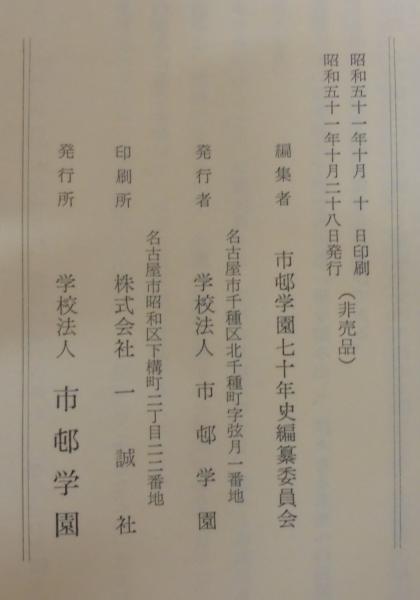 昭和五十一年十月 十 日印刷
昭和五十一年十月二十八日発行
(非売品)
編集者 市邨学園七十年史編纂委員会
名古屋市千種区北千種町字弦月一番地
発行者 学校法人 市邨学園
名古屋市昭和区下構町二丁目二二番地
印刷所 株式会社 一誠社
発行所 学校法人 市邨学園